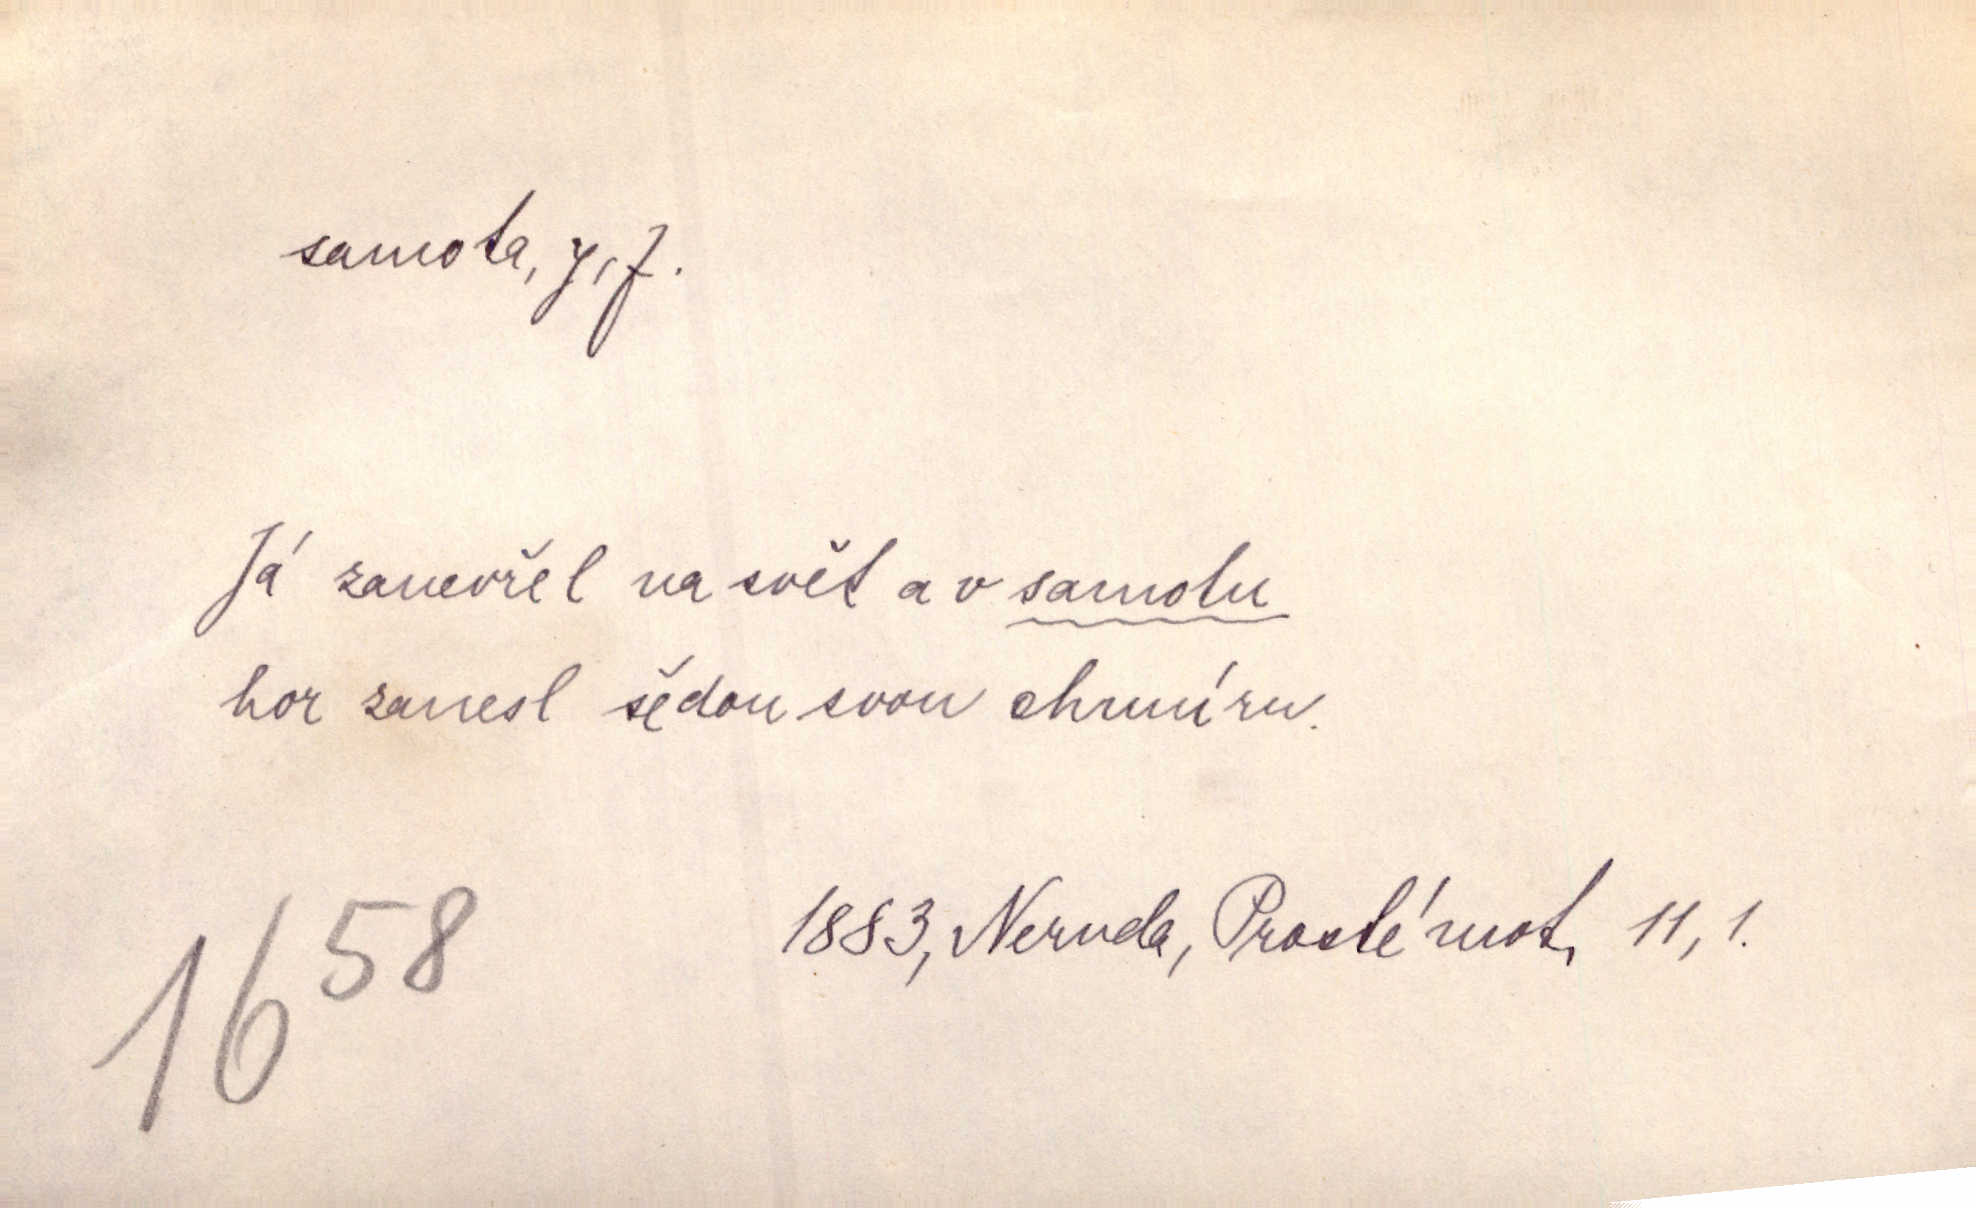 samota, y, f.
Já zanevřel na svět a v samotu
hor zanesl šedou svou chmúru.
1883, Neruda, Prosté mot. 11, 1.
1658